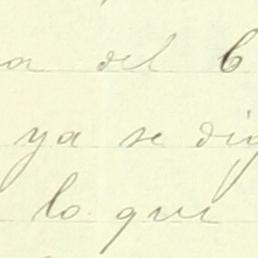 a del C
ya se dig
lo que